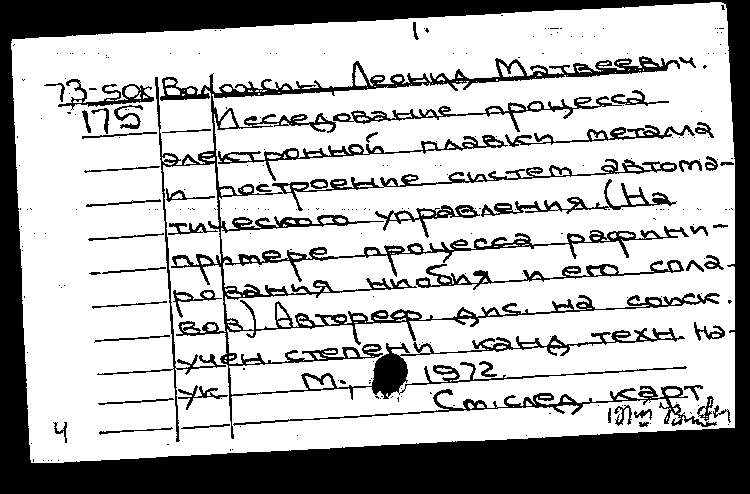 1.
73-50к Воложин, Леонид Матвеевич.
175 Исследование процесса
электронной плавки металла
и построение систем автома-
тического управления. (На
примере процесса рафини-
рования ниобия и его спла-
вов) Автореф. дис. на соиск.
учен. степени канд. техн. на-
ук М., 1972.
См. след. карт
4